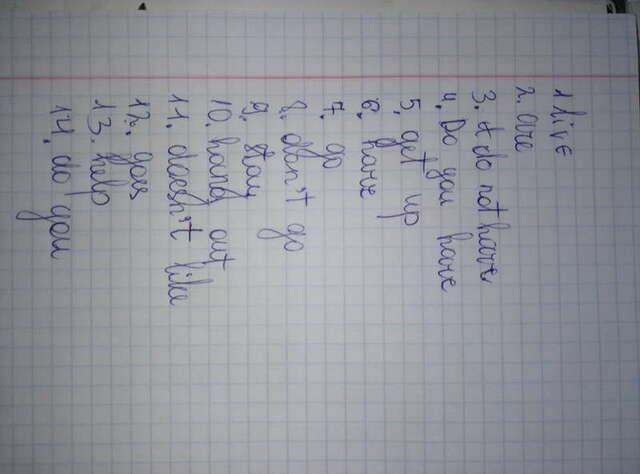 1 live
2. are
3. I do not have
4. Do you have
5. get up
6. have
7. go
8. don't go
9. stay
10. hang out
11. doesn't like
12. goes
13. help
14. do you